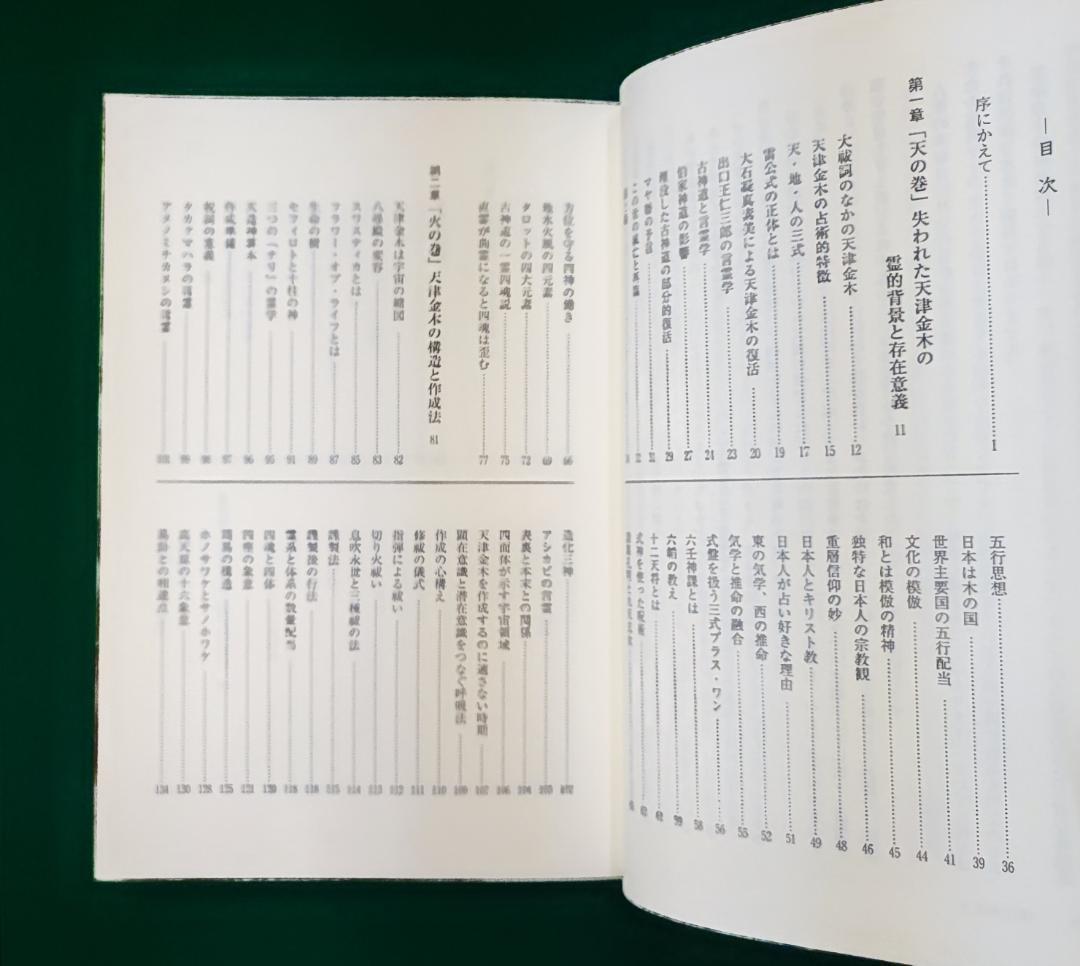 ―目 次―
序にかえて……1
第一章「天の巻」失われた天津金木の
霊的背景と存在意義 11
大祓詞のなかの天津金木……12
天津金木の占術的特徴……15
天・地・人の三式……17
雷公式の正体とは……19
大石凝真素美による天津金木の復活……20
出口王仁三郎の言霊学……23
古神道と言霊学……24
伯家神道の影響……27
埋没した古神道の部分的復活……29
マヤ暦の予言……31
五行思想……36
日本は木の国……39
世界主要国の五行配当……41
文化の模倣……44
和とは模倣の精神……45
独特な日本人の宗教観……46
重層信仰の妙……48
日本人とキリスト教……49
日本人が占い好きな理由……51
東の気学、西の推命……52
気学と推命の融合……55
式盤を扱う三式プラス・ワン……56
六壬神課とは……58
六韜の教え……59
十二天将とは……61
式神を使った呪術……63
方位を守る四神の働き……66
地水火風の四元素……69
タロットの四大元素……72
古神道の一霊四魂説……75
直霊が曲霊になると四魂は歪む……77
第二章「火の巻」天津金木の構造と作成法 81
天津金木は宇宙の縮図……82
八尋殿の変容……83
スワスティカとは……85
フラワー・オブ・ライフとは……87
生命の樹……89
セフィロトと十柱の神……91
三つの「ナリ」の霊学……95
天造神算木……96
作成準備……97
祝詞の意義……98
タカアマハラの言霊……99
アメノミナカヌシの言霊……101
造化三神……102
アシカビの言霊……103
表裏と本末との関係……104
四面体が示す宇宙領域……106
天津金木を作成するのに適さない時期……107
顕在意識と潜在意識をつなぐ呼吸法……109
作成の心構え……110
修祓の儀式……111
指弾による祓い……112
切り火祓い……113
息吹永世と三種祓の法……114
謹製法……115
謹製後の行法……118
霊系と体系の数量配当……118
四魂と四体……120
四種の象意……121
ホノサワケとサノホワケ……128
高天原の十六象意……130
易卦との相違点……134